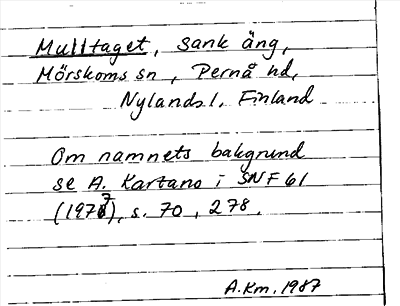 Mulltaget, sank äng,
Mörskoms sn, Pernå hd,
Nylands l. Finland
Om namnets bakgrund
se A. Kartano i SNF 61
(1977), s. 70, 278.
A.Km. 1987